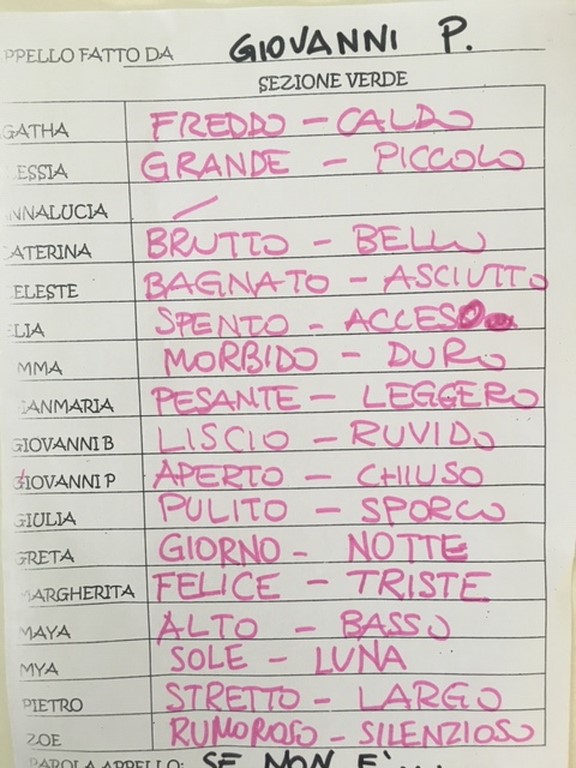 PPELLO FATTO DA GIOVANNI P.
SEZIONE VERDE
GATHA FREDDO - CALDO
ESSIA GRANDE - PICCOLO
NNALUCIA /
ATERINA BRUTTO - BELLO
ELESTE BAGNATO - ASCIUTTO
ELIA SPENTO - ACCESO
MMA MORBIDO - DURO
IANMARIA PESANTE - LEGGERO
GIOVANNI B LISCIO - RUVIDO
GIOVANNI P APERTO - CHIUSO
GIULIA PULITO - SPORCO
GRETA GIORNO - NOTTE
MARGHERITA FELICE - TRISTE
MAYA ALTO - BASSO
MYA SOLE - LUNA
PIETRO STRETTO - LARGO
ZOE RUMOROSO - SILENZIOSO
PAROLA APPELLO: SE NON E'...